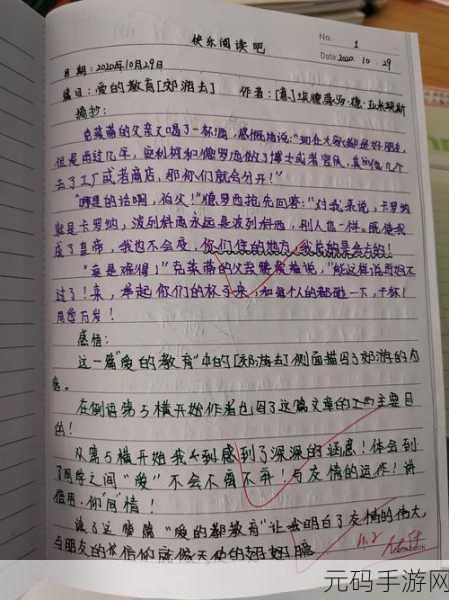 快乐阅读吧
No. 1
Date 2020. 10. 29
日期：2020年10月29日
篇目：爱的教育[郊游去] 作者：[意]埃德蒙多·德·亚米契斯
摘抄：
克莱蒂的父亲又喝了一杯酒，感慨地说："现在大家都是好朋友，
但是再过几年，安利柯和德罗西做了博士或者官僚，其他几个
去了工厂或者商店，那你们就会分开！"
"哪里的话啊，伯父！"德罗西抢先回答："对我来说，卡罗纳
就是卡罗纳，波列科西永远是波列科西，别人也一样。既使我
成了皇帝，我也不会变，你们住的地方，我总是会去的！
"真是难得！"克莱蒂的父亲
过了！来，举起你们的杯子来，和每个人的都碰一下，干杯！
万岁！
感悟：
这一篇"爱的教育"中的[郊游去]侧面描写了郊游的内
容。
在倒语第5横开始作者也写了这篇文章的主要目
的！
从第5横开始我感到了深深的！体会到
了同学之间"爱"不会不离不弃！与友情的运作！讲
信用，你"间"情！
读了这篇"爱的教育"让我明白了友情的伟大，
与朋友的信任就像天使的翅膀
11.2
元码手游网